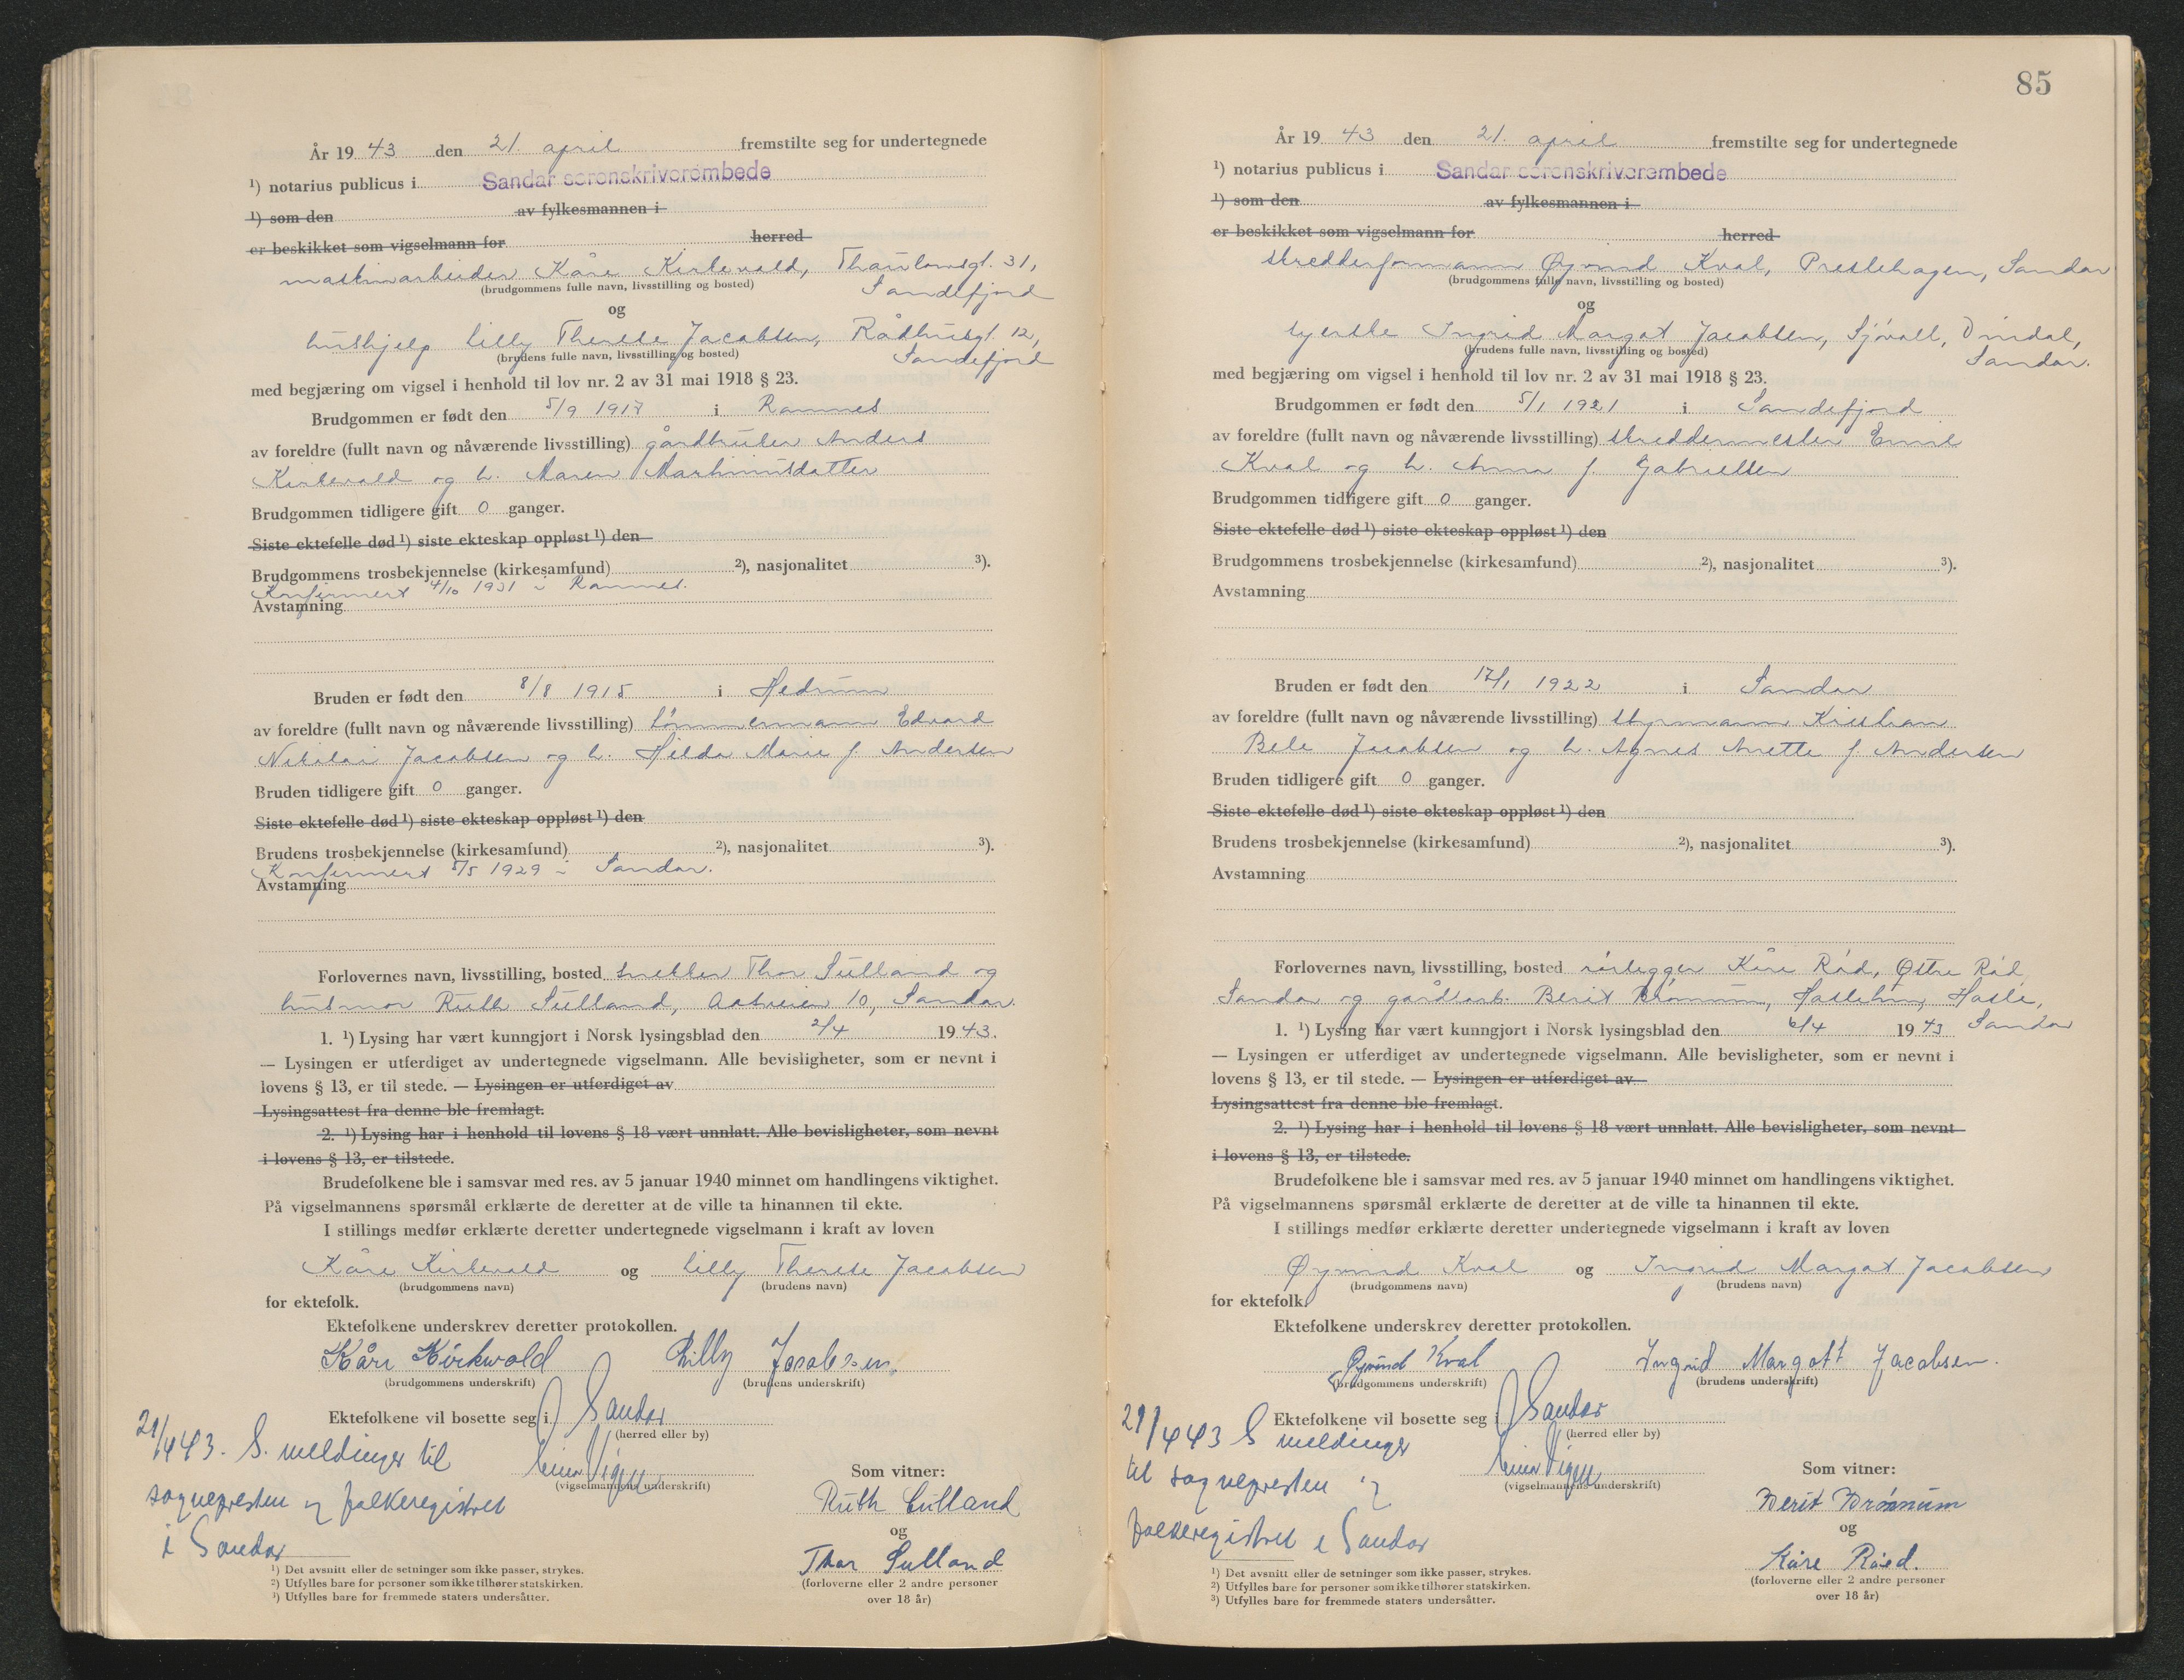 År 19 43 den 21. april fremstilte seg for undertegnede
¹) notarius publicus i Sandar sorenskriverembede
¹) som den av fylkesmannen i
er beskikket som vigselmann for herred
maskinarbeider Kåre Kirkevold, Thaulowsgt. 31,
(brudgommens fulle navn, livsstilling og bosted) Sandefjord
og
hushjelp Lilly Therese Jacobsen, Rådhusgt. 12,
(brudens fulle navn, livsstilling og bosted) Sandefjord
med begjæring om vigsel i henhold til lov nr. 2 av 31 mai 1918 § 23.
Brudgommen er født den 5/9 1917 i Ramnes
av foreldre (fullt navn og nåværende livsstilling) gårdbruker Anders
Kirkevold og h. Maren Marhinusdatter
Brudgommen tidligere gift 0 ganger.
Siste ektefelle død ¹) siste ekteskap oppløst ¹) den
Brudgommens trosbekjennelse (kirkesamfund) ²), nasjonalitet ³).
Konfirmert 4/10 1931 i Ramnes.
Avstamning
Bruden er født den 8/8 1915 i Hedrum
av foreldre (fullt navn og nåværende livsstilling) tømmermann Edvard
Nikolai Jacobsen og h. Hilda Marie f. Andersen
Bruden tidligere gift 0 ganger.
Siste ektefelle død ¹) siste ekteskap oppløst ¹) den
Brudens trosbekjennelse (kirkesamfund) ²), nasjonalitet ³).
Konfirmert 5/5 1929 i Sandar.
Avstamning
Forlovernes navn, livsstilling, bosted snekker Thor Sulland og
husmor Ruth Sulland, 10, Sandar.
1. ¹) Lysing har vært kunngjort i Norsk lysingsblad den 2/4 19 43.
— Lysingen er utferdiget av undertegnede vigselmann. Alle bevisligheter, som er nevnt i
lovens § 13, er til stede. — Lysingen er utferdiget av
Lysingsattest fra denne ble fremlagt.
2. ¹) Lysing har i henhold til lovens § 18 vært unnlatt. Alle bevisligheter, som nevnt
i lovens § 13, er tilstede.
Brudefolkene ble i samsvar med res. av 5 januar 1940 minnet om handlingens viktighet.
På vigselmannens spørsmål erklærte de deretter at de ville ta hinannen til ekte.
I stillings medfør erklærte deretter undertegnede vigselmann i kraft av loven
Kåre Kirkevold og Lilly Therese Jacobsen
(brudgommens navn) (brudens navn)
for ektefolk.
Ektefolkene underskrev deretter protokollen.
Kåre Kirkevold Lilly Jacobsen.
(brudgommens underskrift) (brudens underskrift)
Ektefolkene vil bosette seg i Sandar
(herred eller by)
21/4 43. S. meldinger til
sognepresten og folkeregistret
i Sandar
(vigselmannens underskrift)
Som vitner:
Ruth Sulland
og
Thor Sulland
(forloverne eller 2 andre personer
over 18 år)
¹) Det avsnitt eller de setninger som ikke passer, strykes.
²) Utfylles bare for personer som ikke tilhører statskirken.
³) Utfylles bare for fremmede staters undersåtter.
85
År 19 43 den 21. april fremstilte seg for undertegnede
¹) notarius publicus i Sandar sorenskriverembede
¹) som den av fylkesmannen i
er beskikket som vigselmann for herred
skredderformann Øyvind Kval, Prestehagen, Sandar
(brudgommens fulle navn, livsstilling og bosted)
og
syerske Ingrid Margot Jacobsen, Sjøvoll, Virindal,
(brudens fulle navn, livsstilling og bosted) Sandar.
med begjæring om vigsel i henhold til lov nr. 2 av 31 mai 1918 § 23.
Brudgommen er født den 5/1 1921 i Sandefjord
av foreldre (fullt navn og nåværende livsstilling) skreddermester Emil
Kval og h. Anna f. Gabrielsen
Brudgommen tidligere gift 0 ganger.
Siste ektefelle død ¹) siste ekteskap oppløst ¹) den
Brudgommens trosbekjennelse (kirkesamfund) ²), nasjonalitet ³).
Avstamning
Bruden er født den 17/1 1922 i Sandar
av foreldre (fullt navn og nåværende livsstilling) styrmann Kristian
Bele Jacobsen og h. Agnes Anette f. Andersen
Bruden tidligere gift 0 ganger.
Siste ektefelle død ¹) siste ekteskap oppløst ¹) den
Brudens trosbekjennelse (kirkesamfund) ²), nasjonalitet ³).
Avstamning
Forlovernes navn, livsstilling, bosted rørlegger Kåre Rød, Østre Rød,
Sandar og gårdsarb. Berit Brønnum, Haslehus, Hasle,
Sandar
1. ¹) Lysing har vært kunngjort i Norsk lysingsblad den 6/4 19 43
— Lysingen er utferdiget av undertegnede vigselmann. Alle bevisligheter, som er nevnt i
lovens § 13, er til stede. — Lysingen er utferdiget av
Lysingsattest fra denne ble fremlagt.
2. ¹) Lysing har i henhold til lovens § 18 vært unnlatt. Alle bevisligheter, som nevnt
i lovens § 13, er tilstede.
Brudefolkene ble i samsvar med res. av 5 januar 1940 minnet om handlingens viktighet.
På vigselmannens spørsmål erklærte de deretter at de ville ta hinannen til ekte.
I stillings medfør erklærte deretter undertegnede vigselmann i kraft av loven
Øyvind Kval og Ingrid Margot Jacobsen
(brudgommens navn) (brudens navn)
for ektefolk.
Ektefolkene underskrev deretter protokollen.
Øyvind Kval Ingrid Margott Jacobsen.
(brudgommens underskrift) (brudens underskrift)
Ektefolkene vil bosette seg i Sandar
(herred eller by)
21/4 43 S meldinger
til sognepresten og
folkeregistret i Sandar
(vigselmannens underskrift)
Som vitner:
Berit Brønnum
og
Kåre Røed.
(forloverne eller 2 andre personer
over 18 år)
¹) Det avsnitt eller de setninger som ikke passer, strykes.
²) Utfylles bare for personer som ikke tilhører statskirken.
³) Utfylles bare for fremmede staters undersåtter.